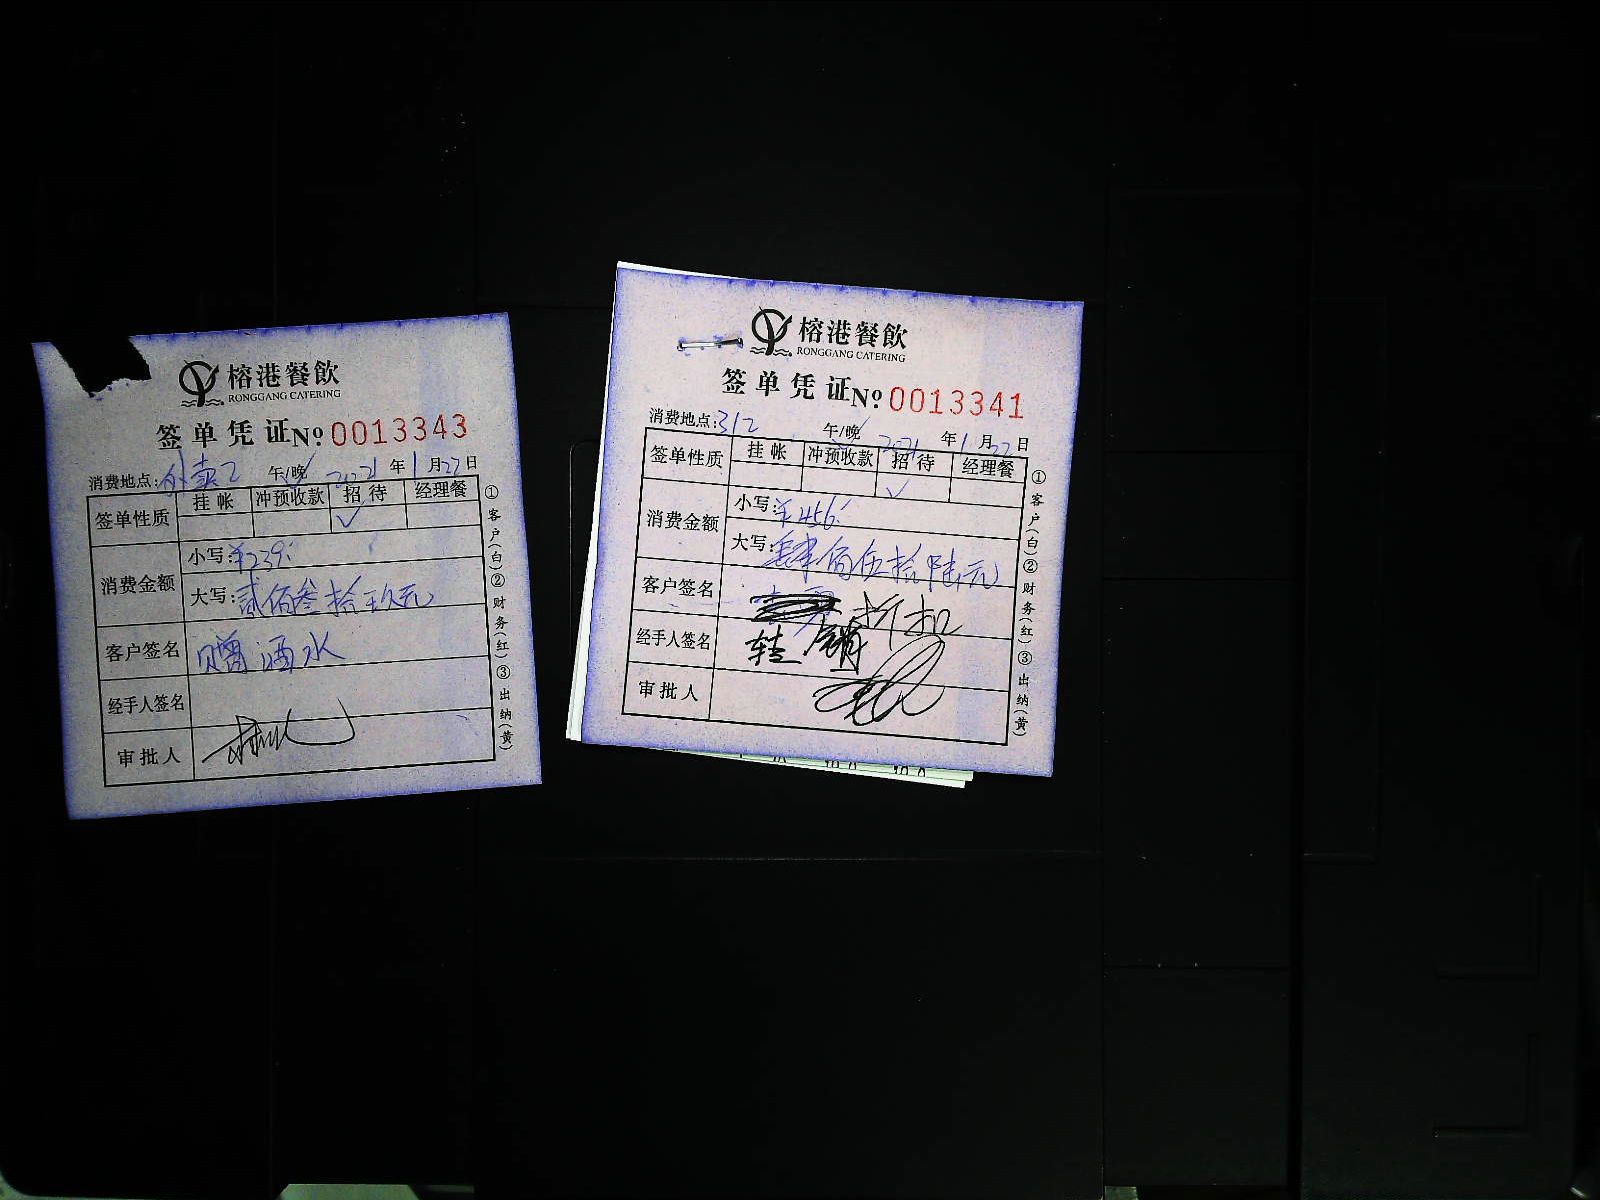 榕港餐飲
RONGGANG CATERING
签单凭证 No 0013343
消费地点:外卖2 午/晚 2021年1月22日
签单性质 挂帐 冲预收款 招待 经理餐
✓
消费金额 小写:¥239.
大写:贰佰叁拾玖元
客户签名 赠酒水
经手人签名
审批人
①客户(白)②财务(红)③出纳(黄)
榕港餐飲
RONGGANG CATERING
签单凭证 No 0013341
消费地点:312 午/晚 2021年1月22日
签单性质 挂帐 冲预收款 招待 经理餐
✓
消费金额 小写:¥456.
大写:肆佰伍拾陆元
客户签名
经手人签名 转
审批人
①客户(白)②财务(红)③出纳(黄)